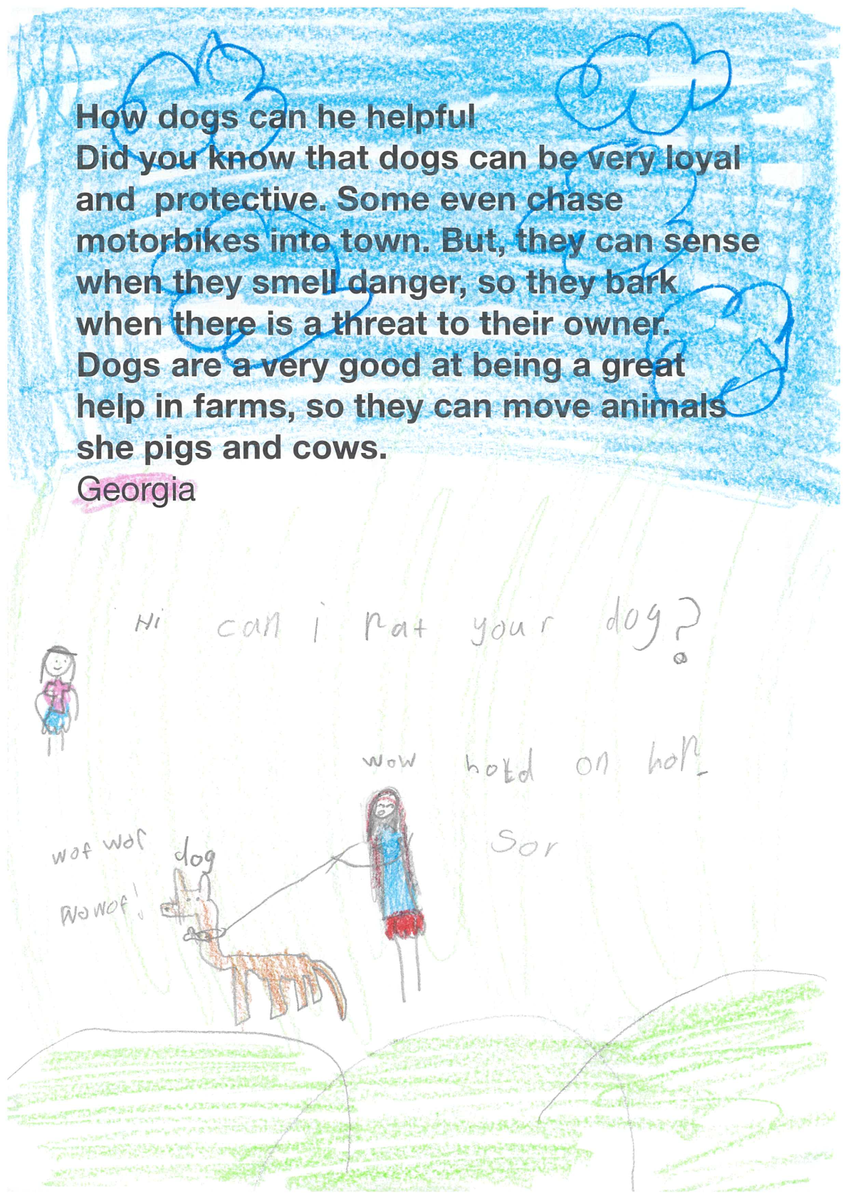 How dogs can he helpful
Did you know that dogs can be very loyal
and  protective. Some even chase
motorbikes into town. But, they can sense
when they smell danger, so they bark
when there is a threat to their owner.
Dogs are a very good at being a great
help in farms, so they can move animals
she pigs and cows.
Georgia
Hi can i pat your dog?
wow hold on
Sor
wof wof dog
wowof!